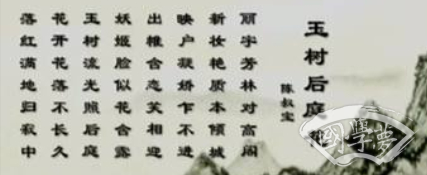 玉树后庭
陈叔宝
丽宇芳林对高阁
新妆艳质本倾城
映户凝娇乍不进
出帷含态笑相迎
妖姬脸似花含露
玉树流光照后庭
花开花落不长久
落红满地归寂中
國學夢